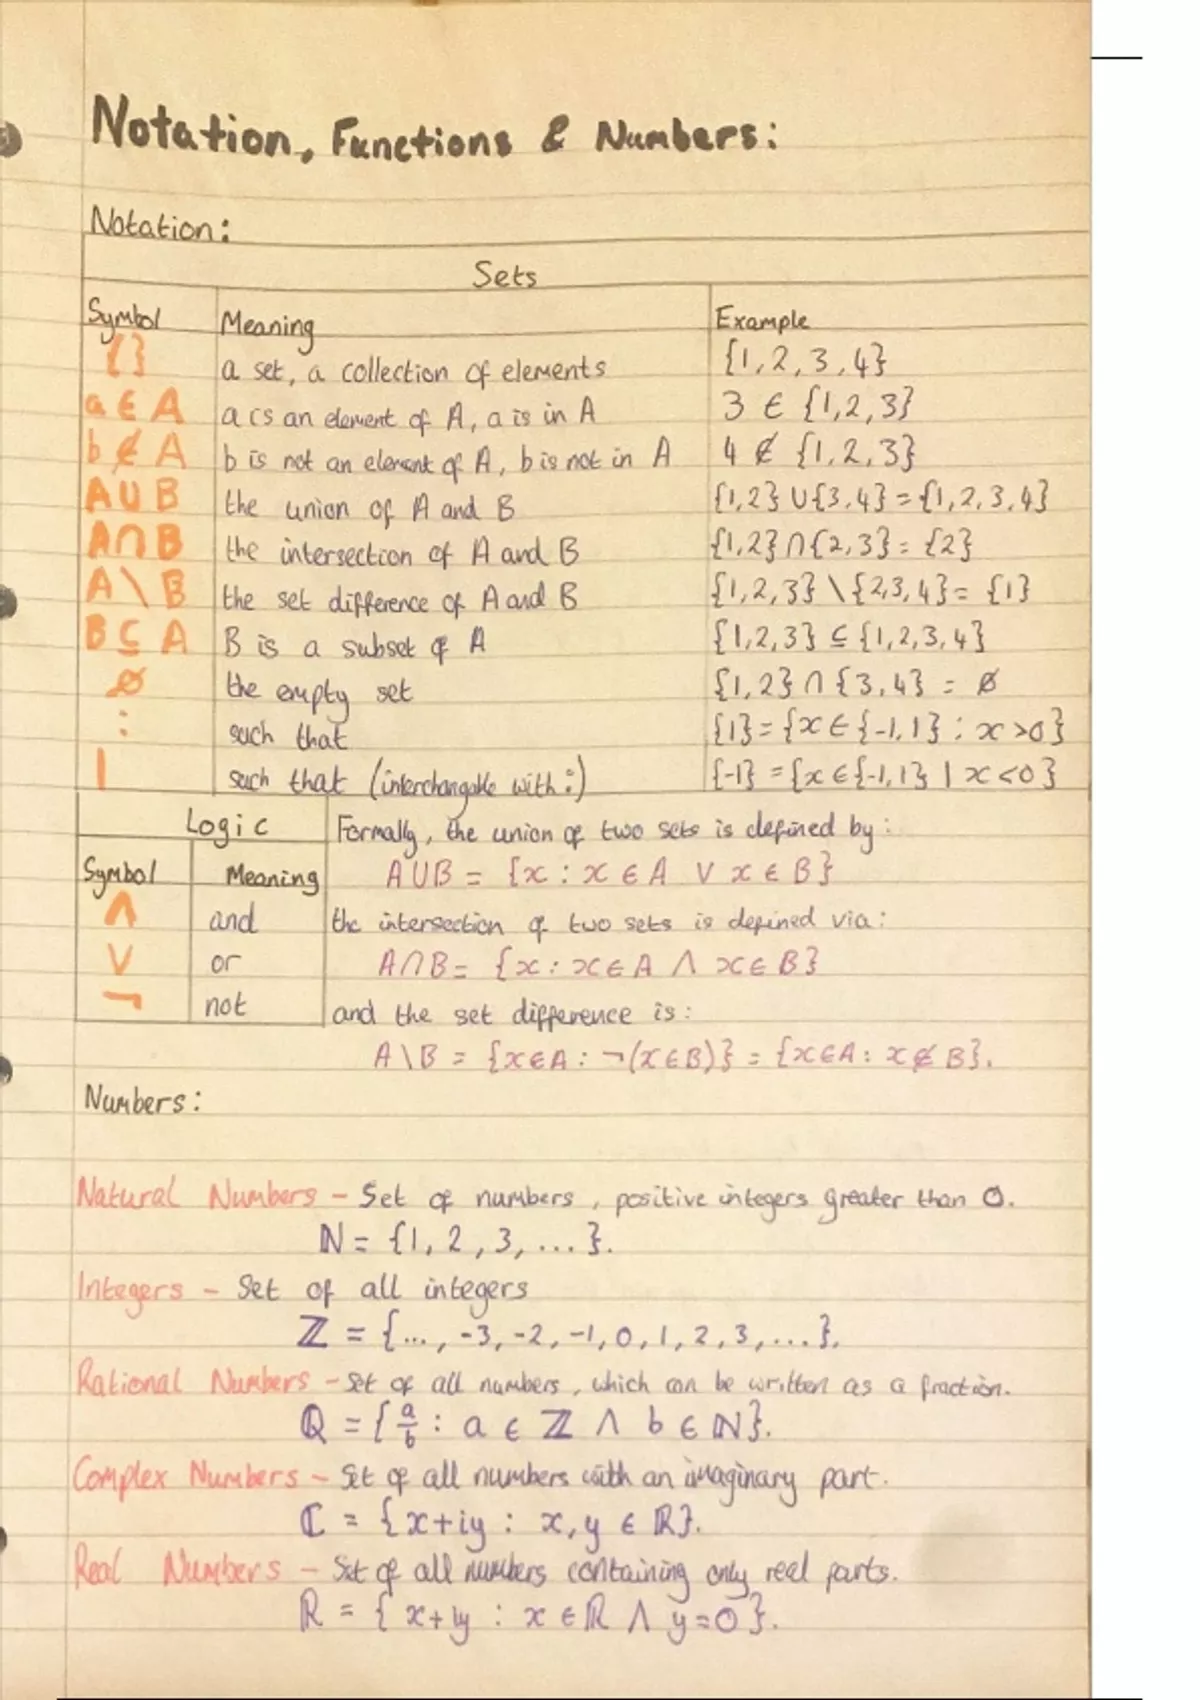 Notation, Functions & Numbers:
Notation:
Sets
Symbol Meaning Example
{ } a set, a collection of elements {1,2,3,4}
a ∈ A a is an element of A, a is in A 3 ∈ {1,2,3}
b ∉ A b is not an element of A, b is not in A 4 ∉ {1,2,3}
A ∪ B the union of A and B {1,2} ∪ {3,4} = {1,2,3,4}
A ∩ B the intersection of A and B {1,2} ∩ {2,3} = {2}
A \ B the set difference of A and B {1,2,3} \ {2,3,4} = {1}
B ⊆ A B is a subset of A {1,2,3} ⊆ {1,2,3,4}
∅ the empty set {1,2} ∩ {3,4} = ∅
: such that {1} = {x ∈ {-1,1} : x > 0}
| such that (interchangable with :) {-1} = {x ∈ {-1,1} | x < 0}
Logic Formally, the union of two sets is defined by:
Symbol Meaning A ∪ B = {x : x ∈ A ∨ x ∈ B}
∧ and the intersection of two sets is defined via:
∨ or A ∩ B = {x : x ∈ A ∧ x ∈ B}
¬ not and the set difference is:
A \ B = {x ∈ A : ¬(x ∈ B)} = {x ∈ A : x ∉ B}.
Numbers:
Natural Numbers - Set of numbers, positive integers greater than 0.
ℕ = {1, 2, 3, ... }.
Integers - Set of all integers
ℤ = {..., -3, -2, -1, 0, 1, 2, 3, ... }.
Rational Numbers - Set of all numbers, which can be written as a fraction.
ℚ = {a/b : a ∈ ℤ ∧ b ∈ ℕ}.
Complex Numbers - Set of all numbers with an imaginary part.
ℂ = {x+iy : x, y ∈ ℝ}.
Real Numbers - Set of all numbers containing only real parts.
ℝ = {x+iy : x ∈ ℝ ∧ y=0}.